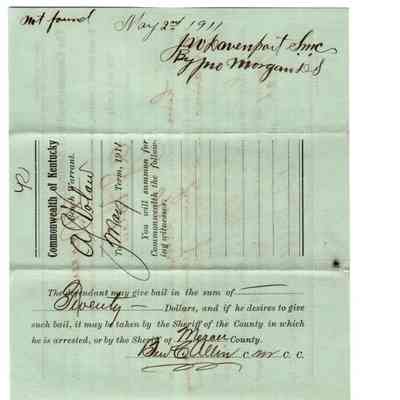 Not found
May 2nd 1911
J W Davenport S.M.C
By Jno Morgan D S
42
Commonwealth of Kentucky
Bench Warrant.
To May Term, 1911
You will summon for
Commonwealth the follow-
ing witnesses.
The defendant may give bail in the sum of
Twenty — Dollars, and if he desires to give
such bail, it may be taken by the Sheriff of the County in which
he is arrested, or by the Sheriff of Mercer County.
Ben C Allin C. M. C. C.